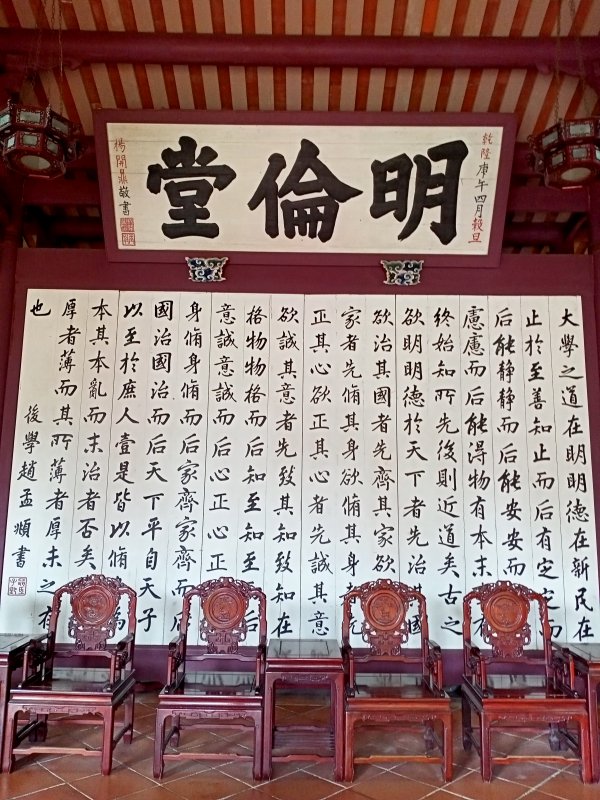 乾隆庚午四月穀旦
明倫堂
楊開鼎敬書
大學之道在明明德在新民在
止於至善知止而后有定定而
后能靜靜而后能安安而
慮慮而后能得物有本末有
終始知所先後則近道矣古之
欲明明德於天下者先治其國
欲治其國者先齊其家欲
家者先脩其身欲脩其身先
正其心欲正其心者先誠其意
欲誠其意者先致其知致知在
格物物格而后知至知至后
意誠意誠而后心正心正
身脩身脩而后家齊家齊而后
國治國治而后天下平自天子
以至於庶人壹是皆以脩為
本其本亂而末治者否矣
厚者薄而其所薄者厚未之有
也
後學趙孟頫書